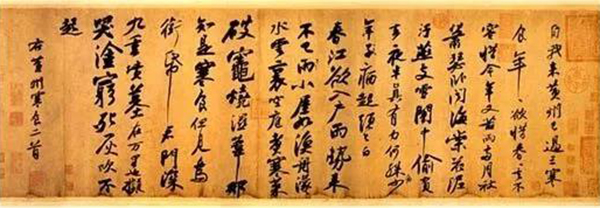 自我來黃州已過三寒
食年〻欲惜春〻去不
容惜今年又苦雨兩月秋
蕭瑟卧聞海棠花泥
汙燕支雪闇中偷負
去夜半真有力何殊少
年子病起頭已白
春江欲入戶雨勢來
不已雨小屋如漁舟濛〻
水雲裏空庖煮寒菜
破竈燒濕葦那
知是寒食但見烏
銜紙君門深
九重墳墓在万里也擬
哭塗窮死灰吹不
起
右黃州寒食二首